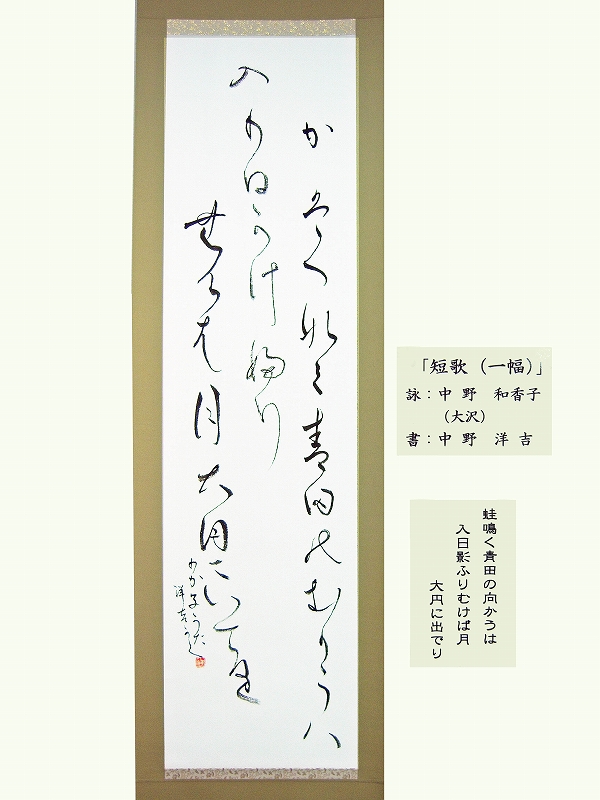 かはつなく青田のむかうハ
入り日かけふり
むけは月大円にいてり
わか子うた
洋吉かく
「短歌（一幅）」
詠：中野 和香子
（大沢）
書：中野 洋吉
蛙鳴く青田の向かうは
入日影ふりむけば月
大円に出でり